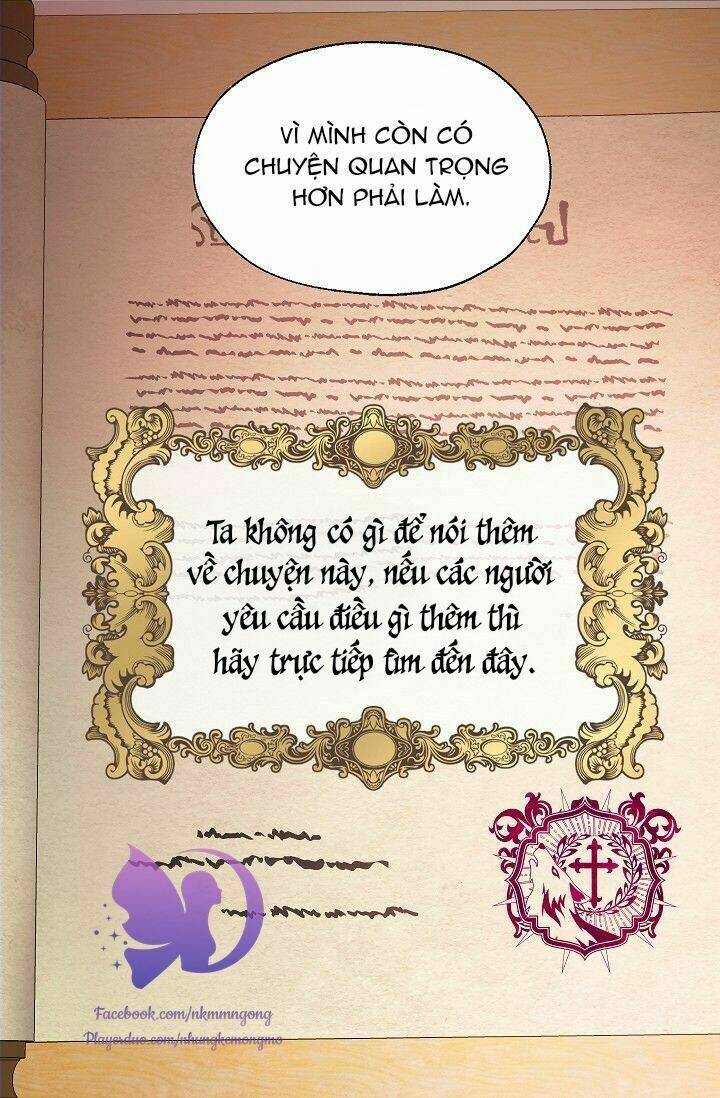 VÌ MÌNH CÒN CÓ
CHUYỆN QUAN TRỌNG
HƠN PHẢI LÀM.
Ta không có gì để nói thêm
về chuyện này, nếu các người
yêu cầu điều gì thêm thì
hãy trực tiếp tìm đến đây.
Facebook.com/nkmmngong
Playerduo.com/nhungkemongmo